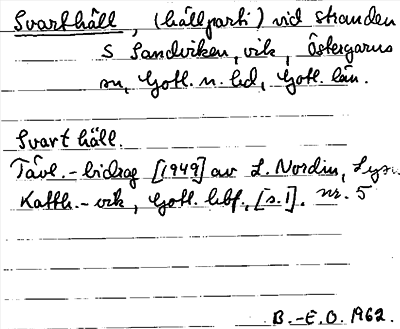 Svarthäll, (hällparti) vid stranden
S Sandviken, vik, Östergarns
sn, Gotl. n. hd, Gotl. län.
Svart häll.
Tävl.-bidrag [1949] av L. Nordin,
Katth.-vik, Gotl. hbf, [s. 1]. nr. 5
B.-E.O. 1962.